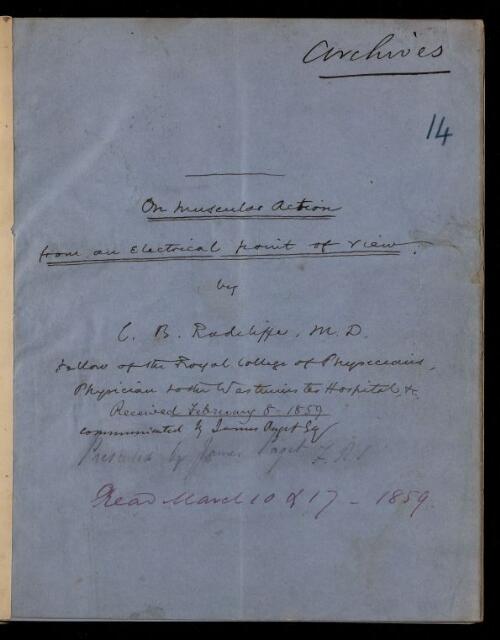 Archives
14
On Muscular Action
from an Electrical point of view.
by
C. B. Radcliffe, M.D.
Fellow of the Royal College of Physicians,
Physician to the Westminster Hospital, &c
Received February 8 - 1859
communicated by James Paget Esq
Presented by James Paget F.R.S
Read March 10 & 17 - 1859.